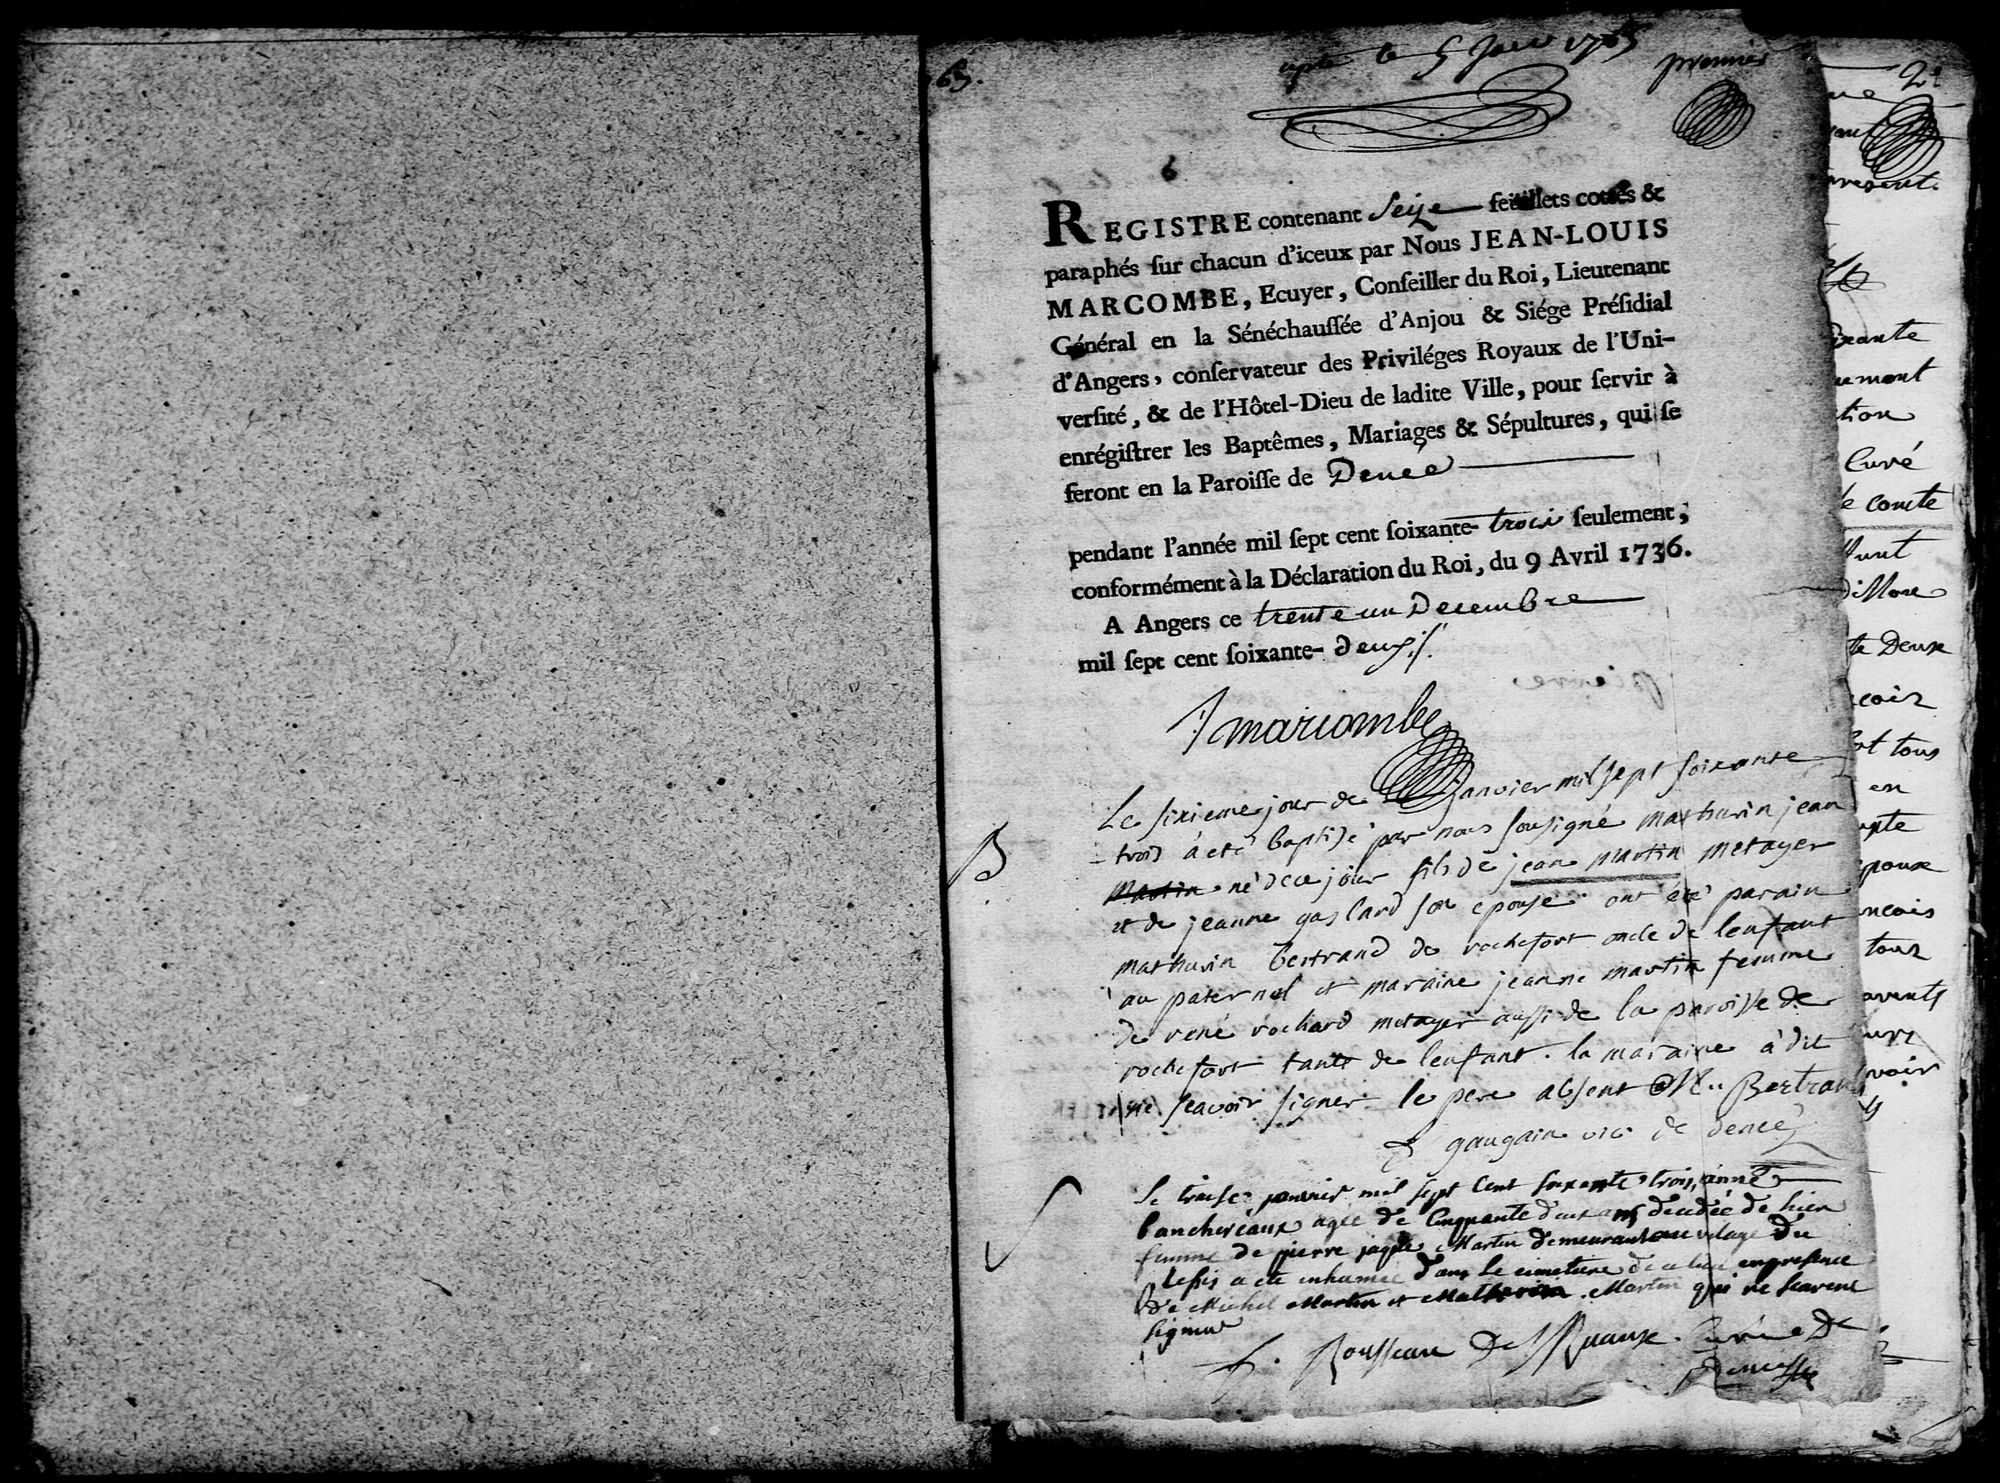 63.
le 5 Janv 1763
premier
REGISTRE contenant Seize feüillets cottés &
paraphés ſur chacun d'iceux par Nous JEAN-LOUIS
MARCOMBE, Ecuyer, Conſeiller du Roi, Lieutenant
Général en la Sénéchauſſée d'Anjou & Siége Préſidial
d'Angers, conſervateur des Priviléges Royaux de l'Uni-
verſité, & de l'Hôtel-Dieu de ladite Ville, pour ſervir à
enrégiſtrer les Baptêmes, Mariages & Sépultures, qui ſe
feront en la Paroiſſe de Denée
pendant l'année mil ſept cent ſoixante- trois ſeulement;
conformément à la Déclaration du Roi, du 9 Avril 1736.
A Angers ce trente un Decembre
mil ſept cent ſoixante- deux
marcombe
B
Le sixieme jour de janvier mil sept soixante
trois à eté baptisé par nous sousigné mathurin jean
martin né de ce jour fils de jean martin metayer
et de jeanne gaslard son epouse ont été parain
mathurin bertrand de rochefort oncle de lenfant
au paternel et maraine jeanne martin femme
de rené rochard metayer aussi de la paroisse de
rochefort tante de lenfant. la maraine à dit
ne scavoir signer le pere absent M Bertrand
gaugain vic de denée
Le treise janvier mil sept cent soixante trois, anne
banchereaux agée de cinquante deux ans decedée de hier
femme de pierre jaque Martin demeurant au vilage du
plessis a eté inhumée dans le cimetiere de ce lieu en presence
de Michel Martin et Mathurin Martin qui ne scavent
signer
Rousseau De Ruaux Curé De
Denée
2e
present
ixante
umont
tion
Curé
le comte
te Deux
tous
en
epoux
ancois
tous
voir